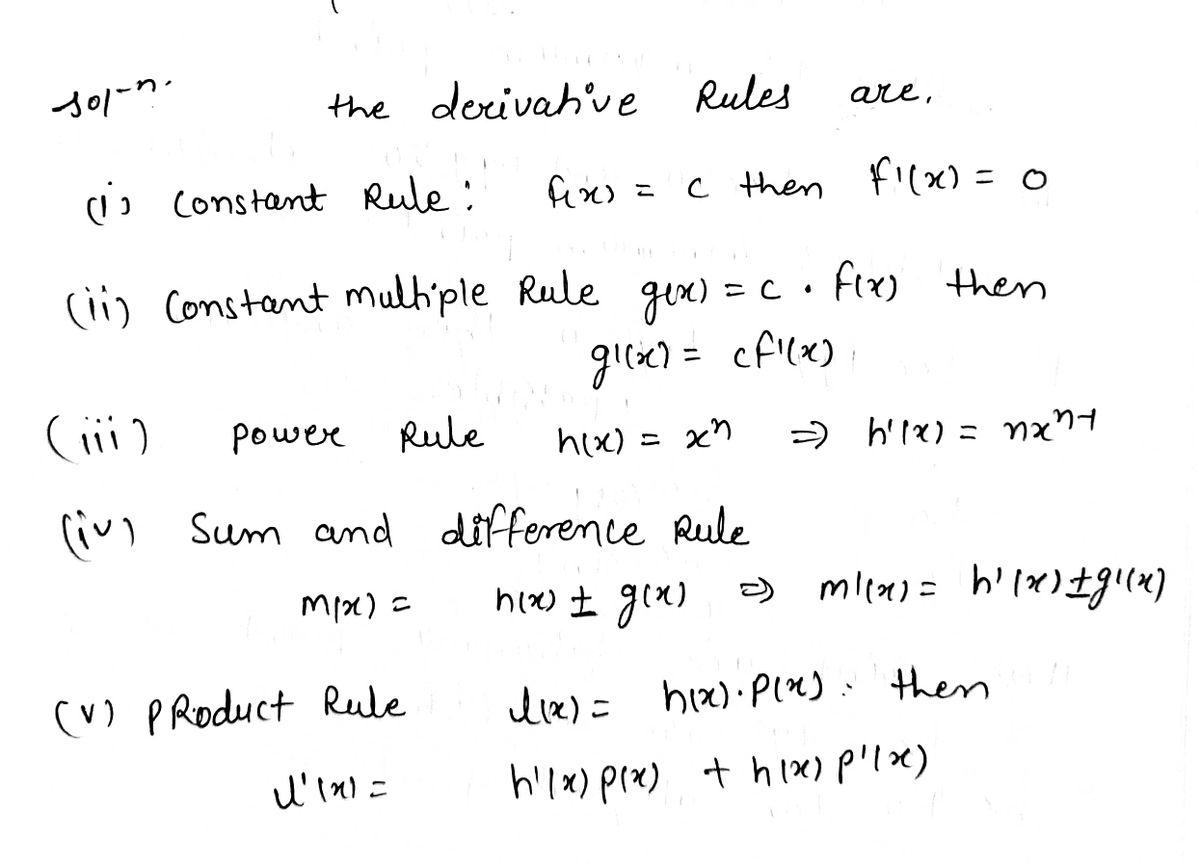 sol-n. the derivative Rules are.
(i) Constant Rule: f(x) = c then f'(x) = 0
(ii) Constant multiple Rule g(x) = c . f(x) then
g'(x) = cf'(x)
(iii) Power Rule h(x) = xⁿ ⇒ h'(x) = nxⁿ⁻¹
(iv) Sum and difference Rule
m(x) = h(x) ± g(x) ⇒ m'(x) = h'(x) ± g'(x)
(v) PRoduct Rule l(x) = h(x) . P(x) . then
l'(x) = h'(x) p(x) + h(x) p'(x)